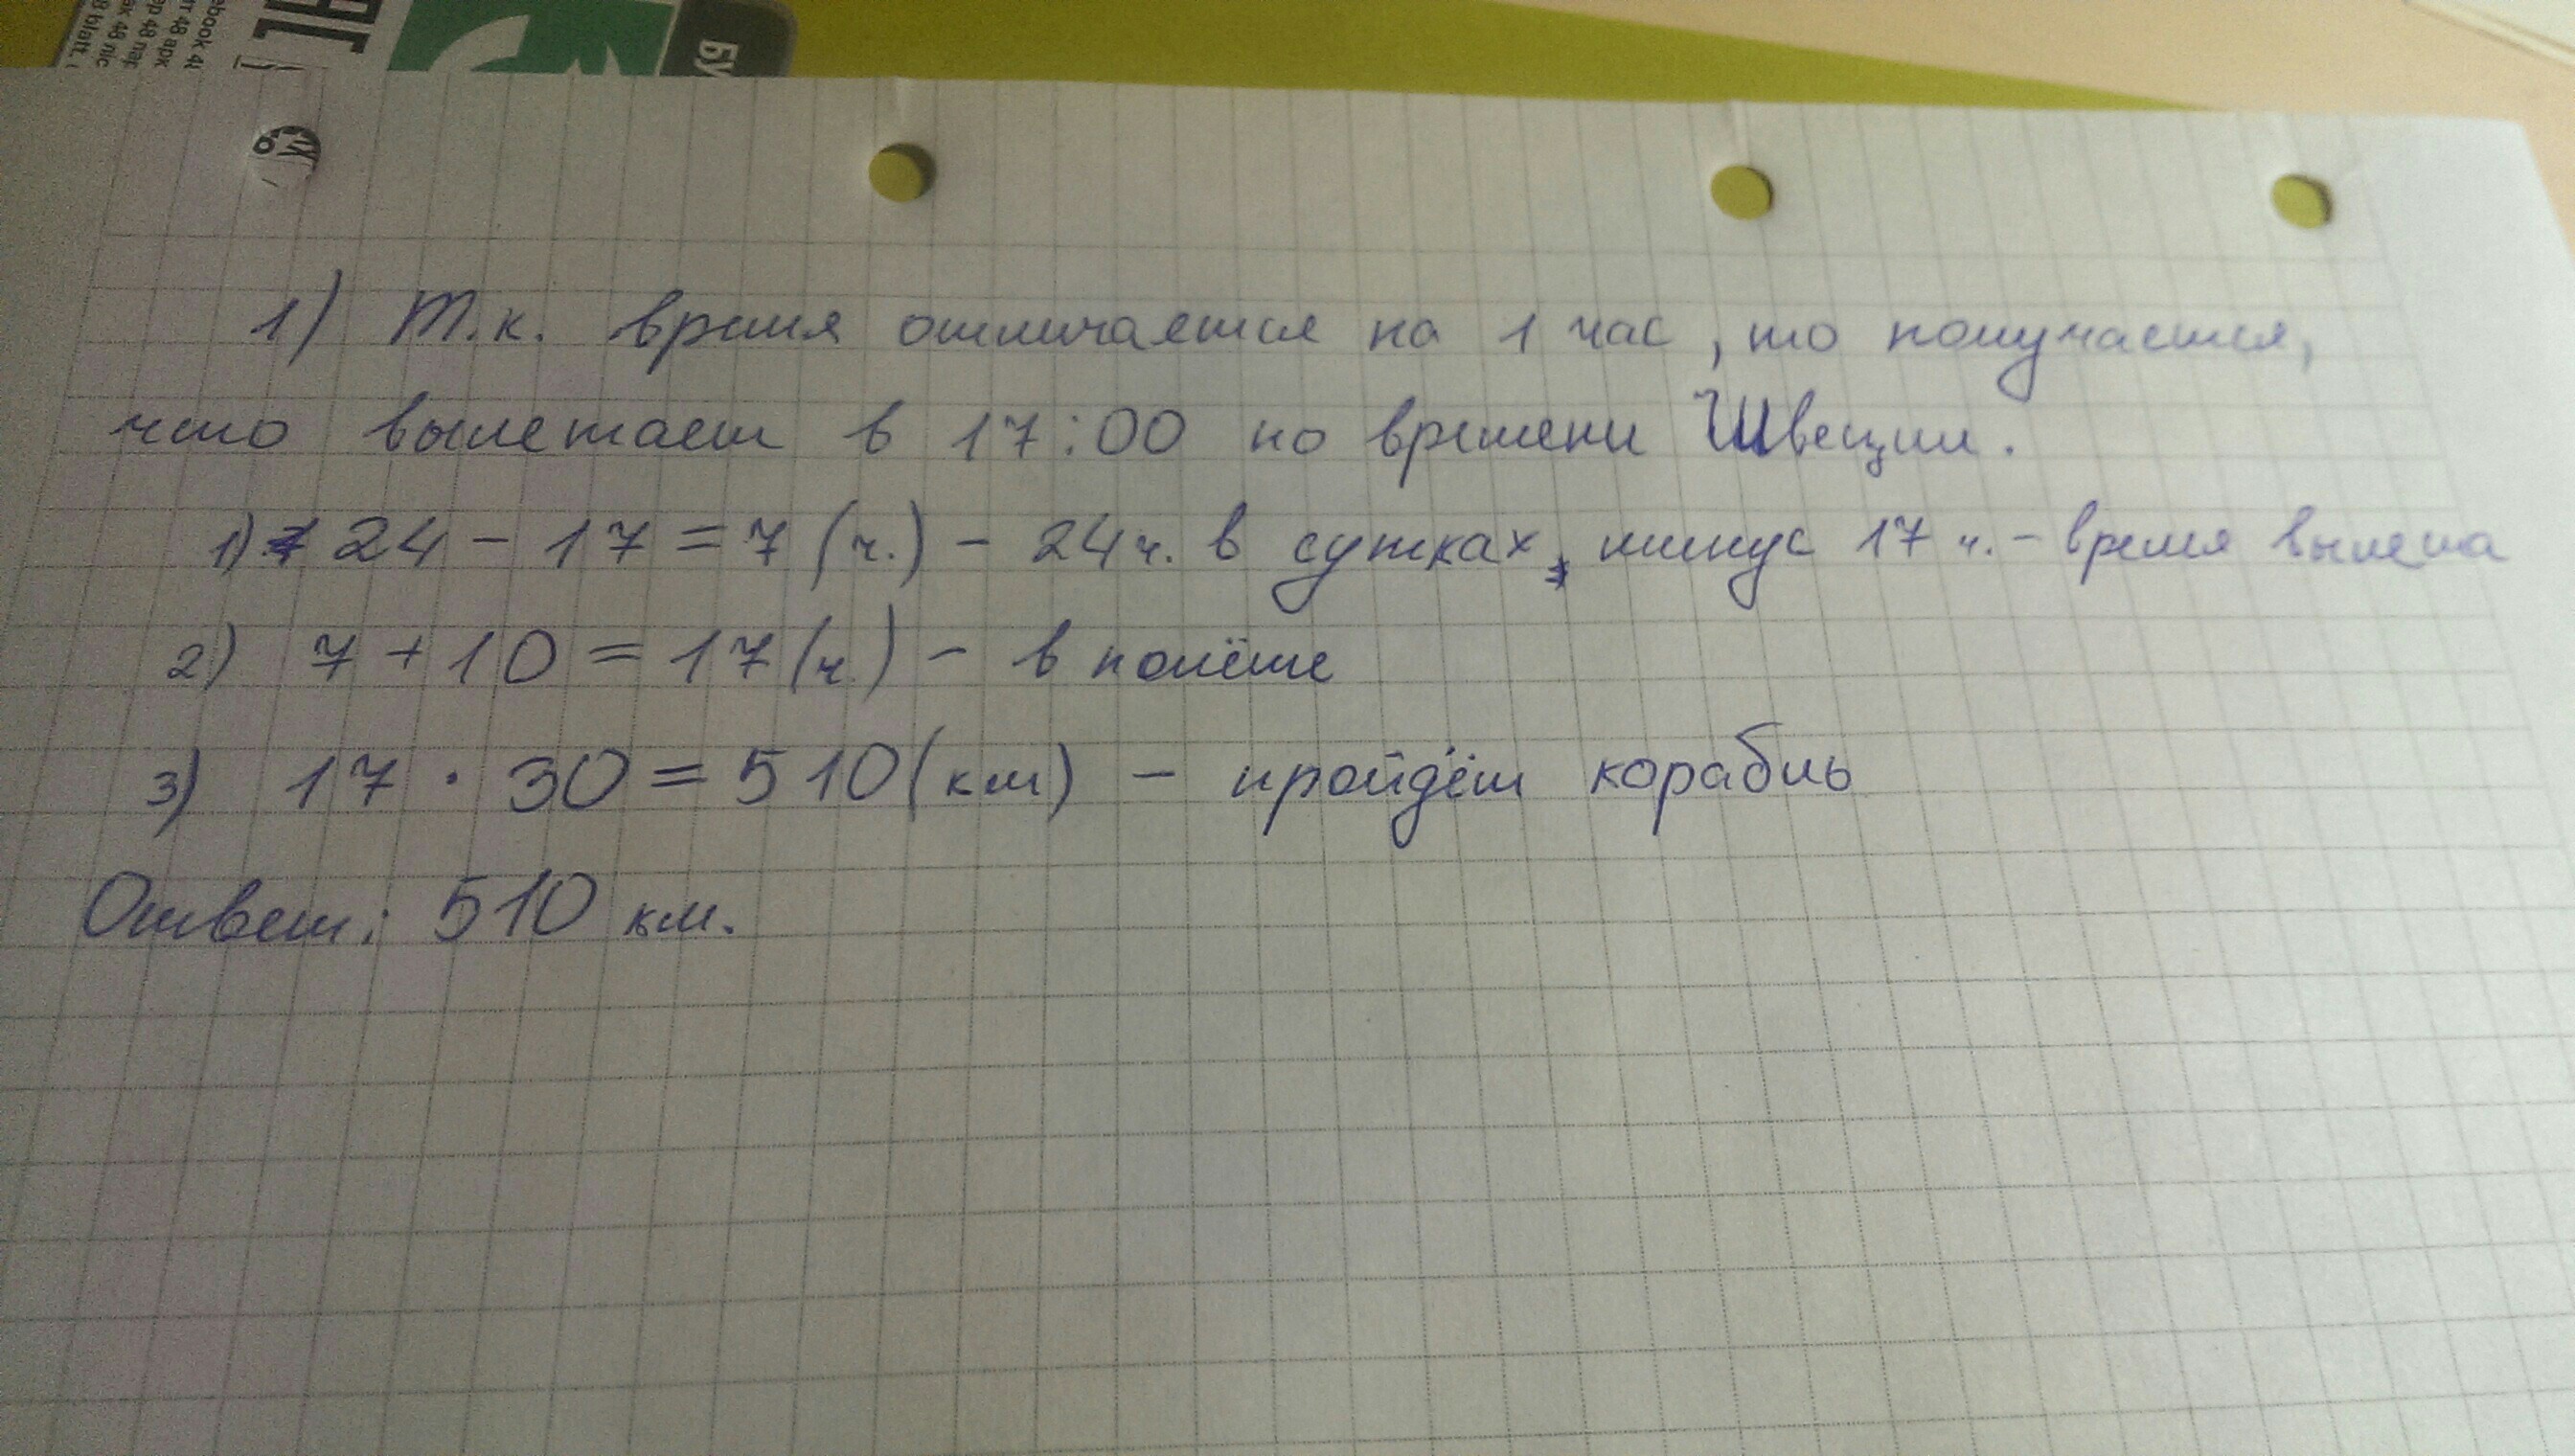 ebook 48
т 48 арк
ер 48 пар
ак 48 lic
8 blatt.
БУ
1) Т.к. время отличается на 1 час, то получается,
что вылетаем в 17:00 по времени Швеции.
1) 24 - 17 = 7 (ч.) - 24 ч. в сутках, минус 17 ч. - время вылета
2) 7 + 10 = 17 (ч.) - в полёте
3) 17 · 30 = 510 (км) - пройдёт корабль
Ответ: 510 км.